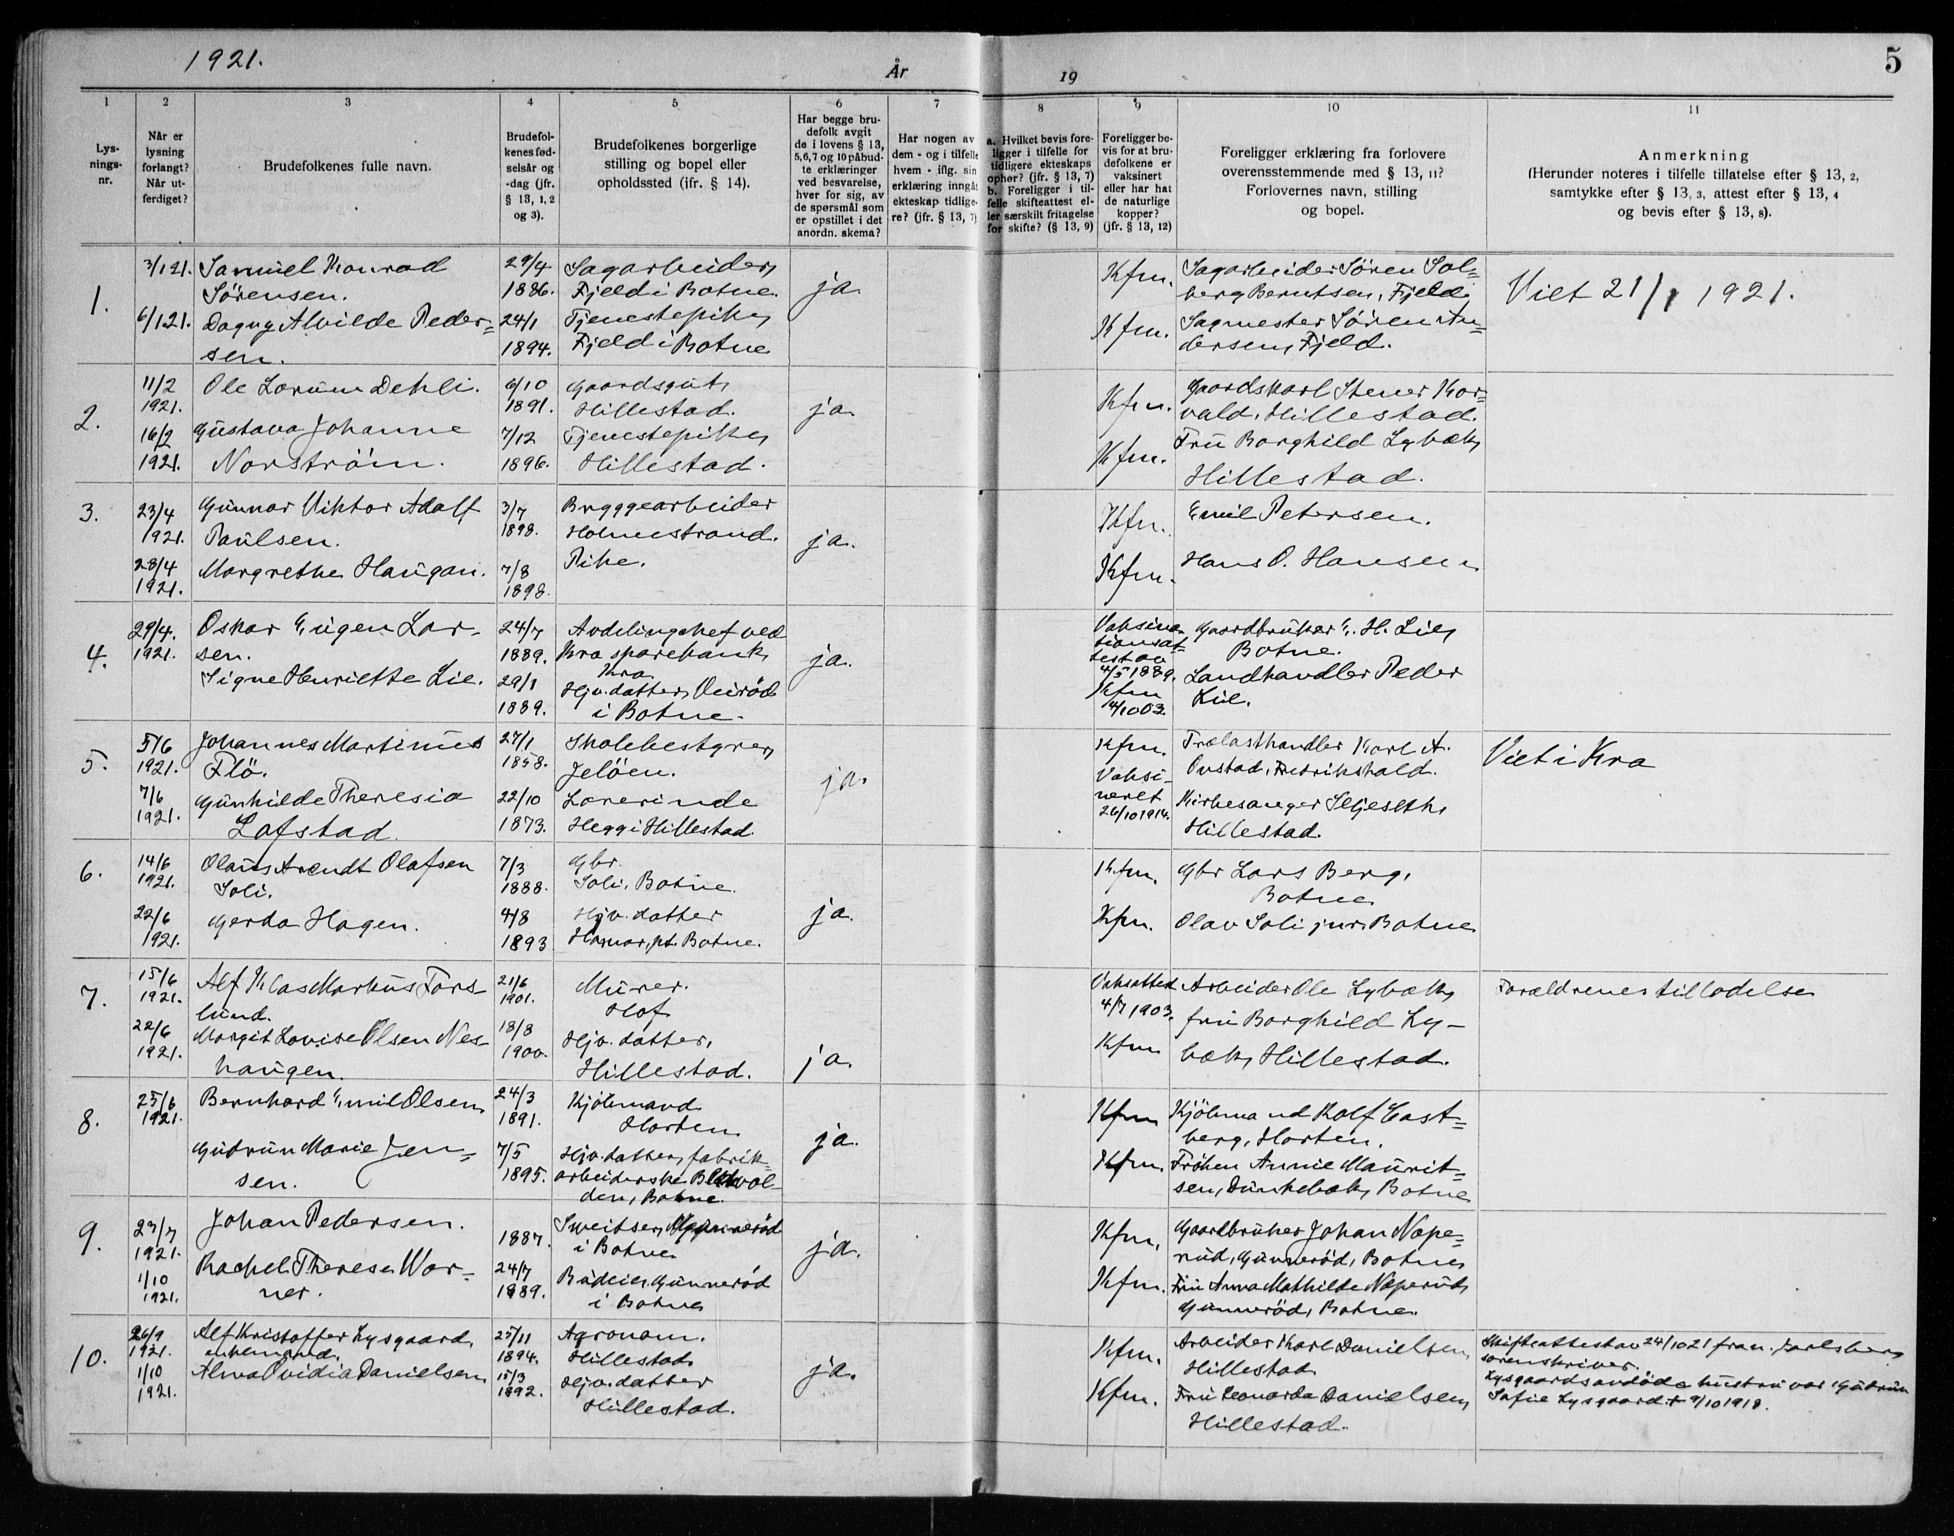 1921.
År
19
5
1
2
3
4
5
6
7
8
9
10
11
Lys-
nings-
nr.
Når er
lysning
forlangt?
Når ut-
ferdiget?
Brudefolkenes fulle navn.
Brudefol-
kenes fød-
selsår og
-dag (jfr.
§ 13, 1, 2
og 3).
Brudefolkenes borgerlige
stilling og bopel eller
opholdssted (jfr. § 14).
Har begge bru-
defolk avgit
de i lovens § 13,
5,6,7 og 10 påbud-
te erklæringer
ved besvarelse,
hver for sig, av
de spørsmål som
er opstillet i det
anordn. skema?
Har nogen av
dem - og i tilfelle
hvem - iflg. sin
erklæring inngåt
ekteskap tidlige-
re? (jfr. § 13, 7)
a. Hvilket bevis fore-
ligger i tilfelle for
tidligere ekteskaps
ophør? (jfr. § 13, 7)
b. Foreligger i til-
felle skifteattest el-
ler særskilt fritagelse
for skifte? (§ 13, 9)
Foreligger be-
vis for at bru-
defolkene er
vaksinert
eller har hat
de naturlige
kopper?
(jfr. § 13, 12)
Foreligger erklæring fra forlovere
overensstemmende med § 13, 11?
Forlovernes navn, stilling
og bopel.
Anmerkning
(Herunder noteres i tilfelle tillatelse efter § 13, 2,
samtykke efter § 13, 3, attest efter § 13, 4
og bevis efter § 13, 8).
1.
3/1 21.
6/1 21.
Samuel Konrad
Sörensen.
Dagny Alvilde Peder=
sen.
29/4
1886.
24/1
1894.
Sagarbeider,
Fjeld i Botne.
Tjenestepike,
Fjeld i Botne
ja.
Kfm.
Kfm.
Sagarbeider Sören Sol=
berg Berntsen, Fjeld,
Sagmester Sören An=
dersen, Fjeld.
Viet 21/1 1921.
2.
11/2
1921.
16/2
1921.
Ole Lorum Dehli.
Gustava Johanne
Norström.
6/10
1891.
7/12
1896.
Gaardsgut,
Hillestad.
Tjenestepike,
Hillestad.
ja.
Kfm.
Kfm.
Gaardskarl Stener Kor=
vald, Hillestad.
Fru Borghild Lybæk,
Hillestad.
3.
23/4
1921.
28/4
1921.
Gunnar Viktor Adolf
Paulsen.
Margrethe Haugan.
3/7
1898.
7/8
1898.
Bryggearbeider
Holmestrand.
Pike.
ja.
Kfm.
Kfm.
Emil Petersen.
Hans O. Hansen
4.
29/4.
1921.
Oskar Eugen Lar-
sen.
Signe Henriette Lie.
24/7
1889.
29/1
1889.
Avdelingschef ved
Kra sparebank,
Kra.
Hjv. datter,
i Botne.
ja.
Vaksina-
tionsat-
test av
4/5 1889.
Kfm
4/10 03.
Gaardbruker E. H. Lie,
Botne.
Landhandler Peder
Lie.
5.
5/6
1921.
7/6
1921.
Johannes Martinus
Flö.
Gunhilde Theresia
Lofstad.
27/1
1858.
22/10
1873.
Skolebestyrer,
Jelöen.
Lærerinde
Hegg i Hillestad
ja.
Kfm.
Vaksi-
neret
26/10 1914.
Trælasthandler Karl A.
Ovstad, Fredrikshald.
Kirkesanger Seljeseth,
Hillestad.
Viet i Kra
6.
14/6
1921.
22/6
1921.
Olaus Arendt Olafsen
Soli.
Gerda Hagen.
7/3
1888.
4/8
1893
Gbr.
Soli, Botne.
Hjv. datter
pt. Botne.
ja.
Kfm.
Kfm.
Gbr Lars Berg,
Botne
Olav Soli jun., Botne
7.
15/6
1921.
22/6
1921.
Alf Klas Markus Fors-
lund.
Margit Lovise Olsen Nes-
haugen.
21/6
1901.
18/8
1900.
Murer.
Hof
Hjv. datter,
Hillestad.
ja.
Vaksattest
4/7 1903.
Kfm
Arbeider Ole Lybæk,
fru Borghild Ly-
bæk, Hillestad.
Forældrenes tilladelse
8.
25/6
1921.
Bernhard Emil Olsen,
Gudrun Marie Jen=
sen.
24/3
1891.
7/5
1895.
Kjöbmand
Horten
Hjv. datter, fabrik=
arbeiderske
den, Botne.
ja.
Kfm
Kfm.
Kjöbmand Rolf Cast=
berg, Horten.
Fröken Annie Maurit=
sen, Dunkebæk, Botne
9.
23/7
1921.
1/10
1921.
Johan Pedersen.
Rachel Therese War=
ner.
1887.
24/7
1889.
Sveitser,
i Botne
Budeie, Gunneröd
i Botne
ja.
Kfm.
Kfm.
Gaardbruker Johan Nape=
rud, Gunneröd, Botne
Fru Anna Mathilde Naperud,
Gunneröd, Botne.
10.
26/9
1921.
1/10
1921.
Alf Kristoffer Lysgaard,
enkemand.
Alma Ovidia Danielsen,
25/11
1894.
15/3
1892.
Agronom.
Hillestad,
Hjv. datter
Hillestad.
ja.
Kfm.
Kfm.
Arbeider Karl Danielsen,
Hillestad
Fru Leonarda Danielsen,
Hillestad.
Skifteattest av 24/10 21 fra n. Jarlsberg
sorenskriver.
Lysgaards avdöde hustru var Gudrun
Sofie Lysgaard † 9/10 1918.